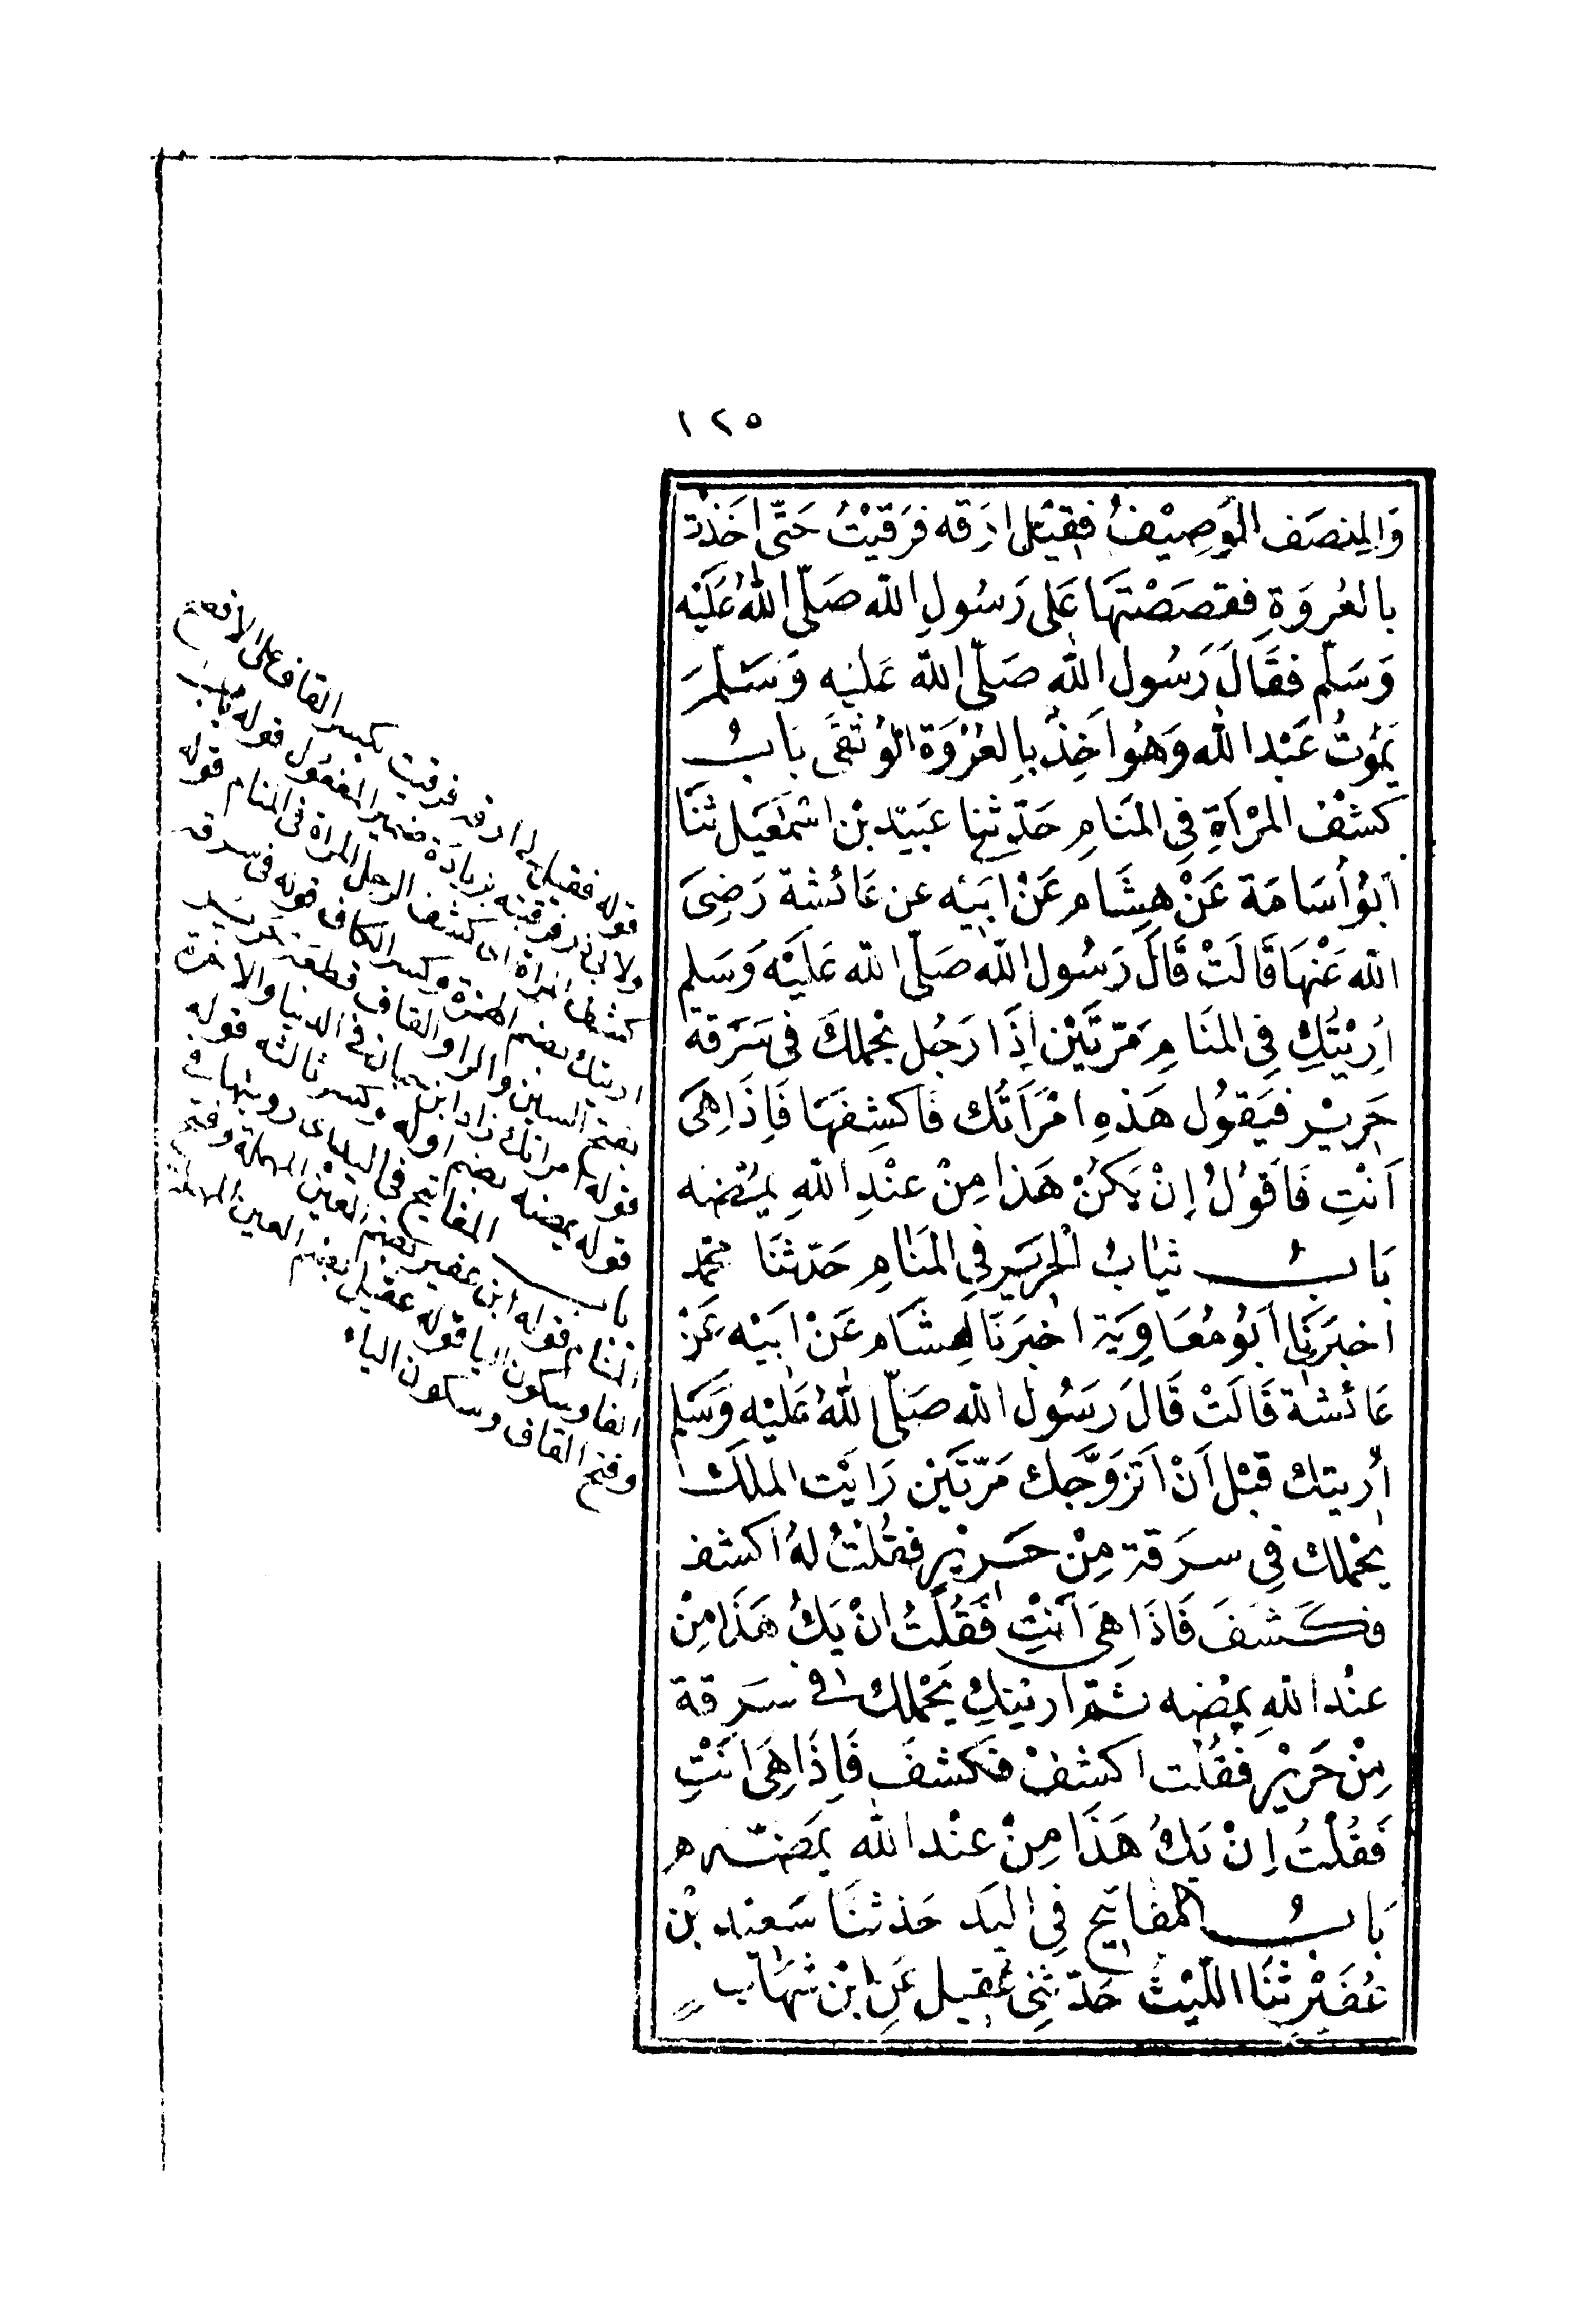 ١٢٥
وَالمِنصَف الوَصِيْفُ فقِيْل ارقه فرَقيْتُ حَتّى اخَذْت
بالعُروَةِ فقصَصْتهَا عَلى رَسُولِ الله صَلّى اللهُ عَلَيْه
وَسَلّم فقَالَ رَسُول الله صَلّى الله عَليه وَسَلّمَ
يَمُوتُ عَبْد الله وَهُوا خِذٌ بالعُرْوَة الوُثقَى بَابُ
كشْفُ المرْاَةِ فِي المَنَامِ حَدّثنا عَبَيد بْن اسْمَعِيَل ثنَا
اَبُو اُسَامَة عَنْ هِشَام عَنْ ابَيْه عن عَائشة رَضِىَ
الله عَنْهَا قَالَتْ قَالَ رَسُول الله صَلّى الله عَلَيْه وَسَلم
اُرِيْتُكِ فِى المنَامِ مَرّتَيْن اِذَا رَجُل يحْملكَ فى سَرَقة
حَرِيْر فيَقوُل هَذهِ امْرَاَتُك فَاكشِفهَا فَاِذَا هِىَ
اَنْتِ فَاَقوُلُ اِنْ يَكنُ هَذا مِنْ عنْدِ اللهِ يمُضه
بَابُ ثيَابُ الْحَرِيَر فِي المنَامِ حَدّثنَا محمد
اخبرَنَا اَبُو مُعَاوِيَة اخبرَنَا هِشَام عَنْ ابَيْه عَنْ
عَائشَة قَالَتْ قَالَ رَسُولُ الله صَلّى اللهُ عَليْهِ وَسَلم
اُريتكِ قبْل اَنْ اَتزَوَّجَك مَرّتَيْن رَايْت الملَكَ
يَحْملكِ فِي سرَقة مِنْ حَرِيْر فقُلْتُ لهُ اكشف
فكَشَفَ فَاذَا هِىَ اَنْتِ فَقُلْتُ اِنْ يَكُ هَذَا مِنْ
عنْد اللهِ يمْضِه ثمّ اريْتكِ يَحْملك فى سَرقة
مِنْ حَرِيْر فقُلْت اكشفْ فكَشفَ فَاِذَا هِىَ انْتِ
فَقُلْتُ اِنْ يَكُ هَذَا مِنْ عنْد الله يمَضه
بَابُ المفَاتيح فِي اليَد حَدثنَا سَعيْد بْن
عُفَيْر ثنَا اللّيْث حَدّثنِى عُقيل عَن ابْن شهَاب
قوله فقيل لى ارقه فرقيت بكسر القاف على الافصح
ولابى ذر فرقيته بزيادة ضمير المفعول قوله باب
كشف المراة اى كشف الرجل المراة فى المنام قوله
اريتك بضم الهمزة وكسر الكاف قوله فى سرقه
بفتح السين والرا والقاف قطعة
قوله امراتك زاد ابن حبان فى الدنيا والاخرة
قوله يمضه بضم اوله وكسر ثالثه قوله
باب المفاتيح فى اليد اى رويتها فى
المنام قوله ابن عفير بضم العين المهملة وفتح
الفا وسكون اليا قوله عقيل بضم العين المهملة
وفتح القاف وسكون الياء